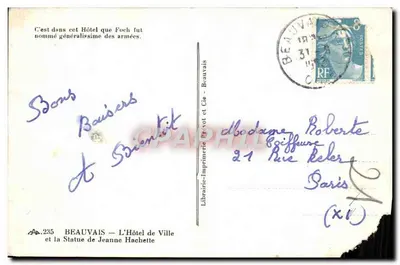 C'est dans cet Hôtel que Foch fut
nommé généralissime des armées.
BEAUVAIS
31
RF
Bons
Baisers
A Bientôt
Madame Roberte
Coiffeuse
21 Rue Keller
Paris
(XI)
21
235 BEAUVAIS — L'Hôtel de Ville
et la Statue de Jeanne Hachette
Librairie-Imprimerie et Cie - Beauvais